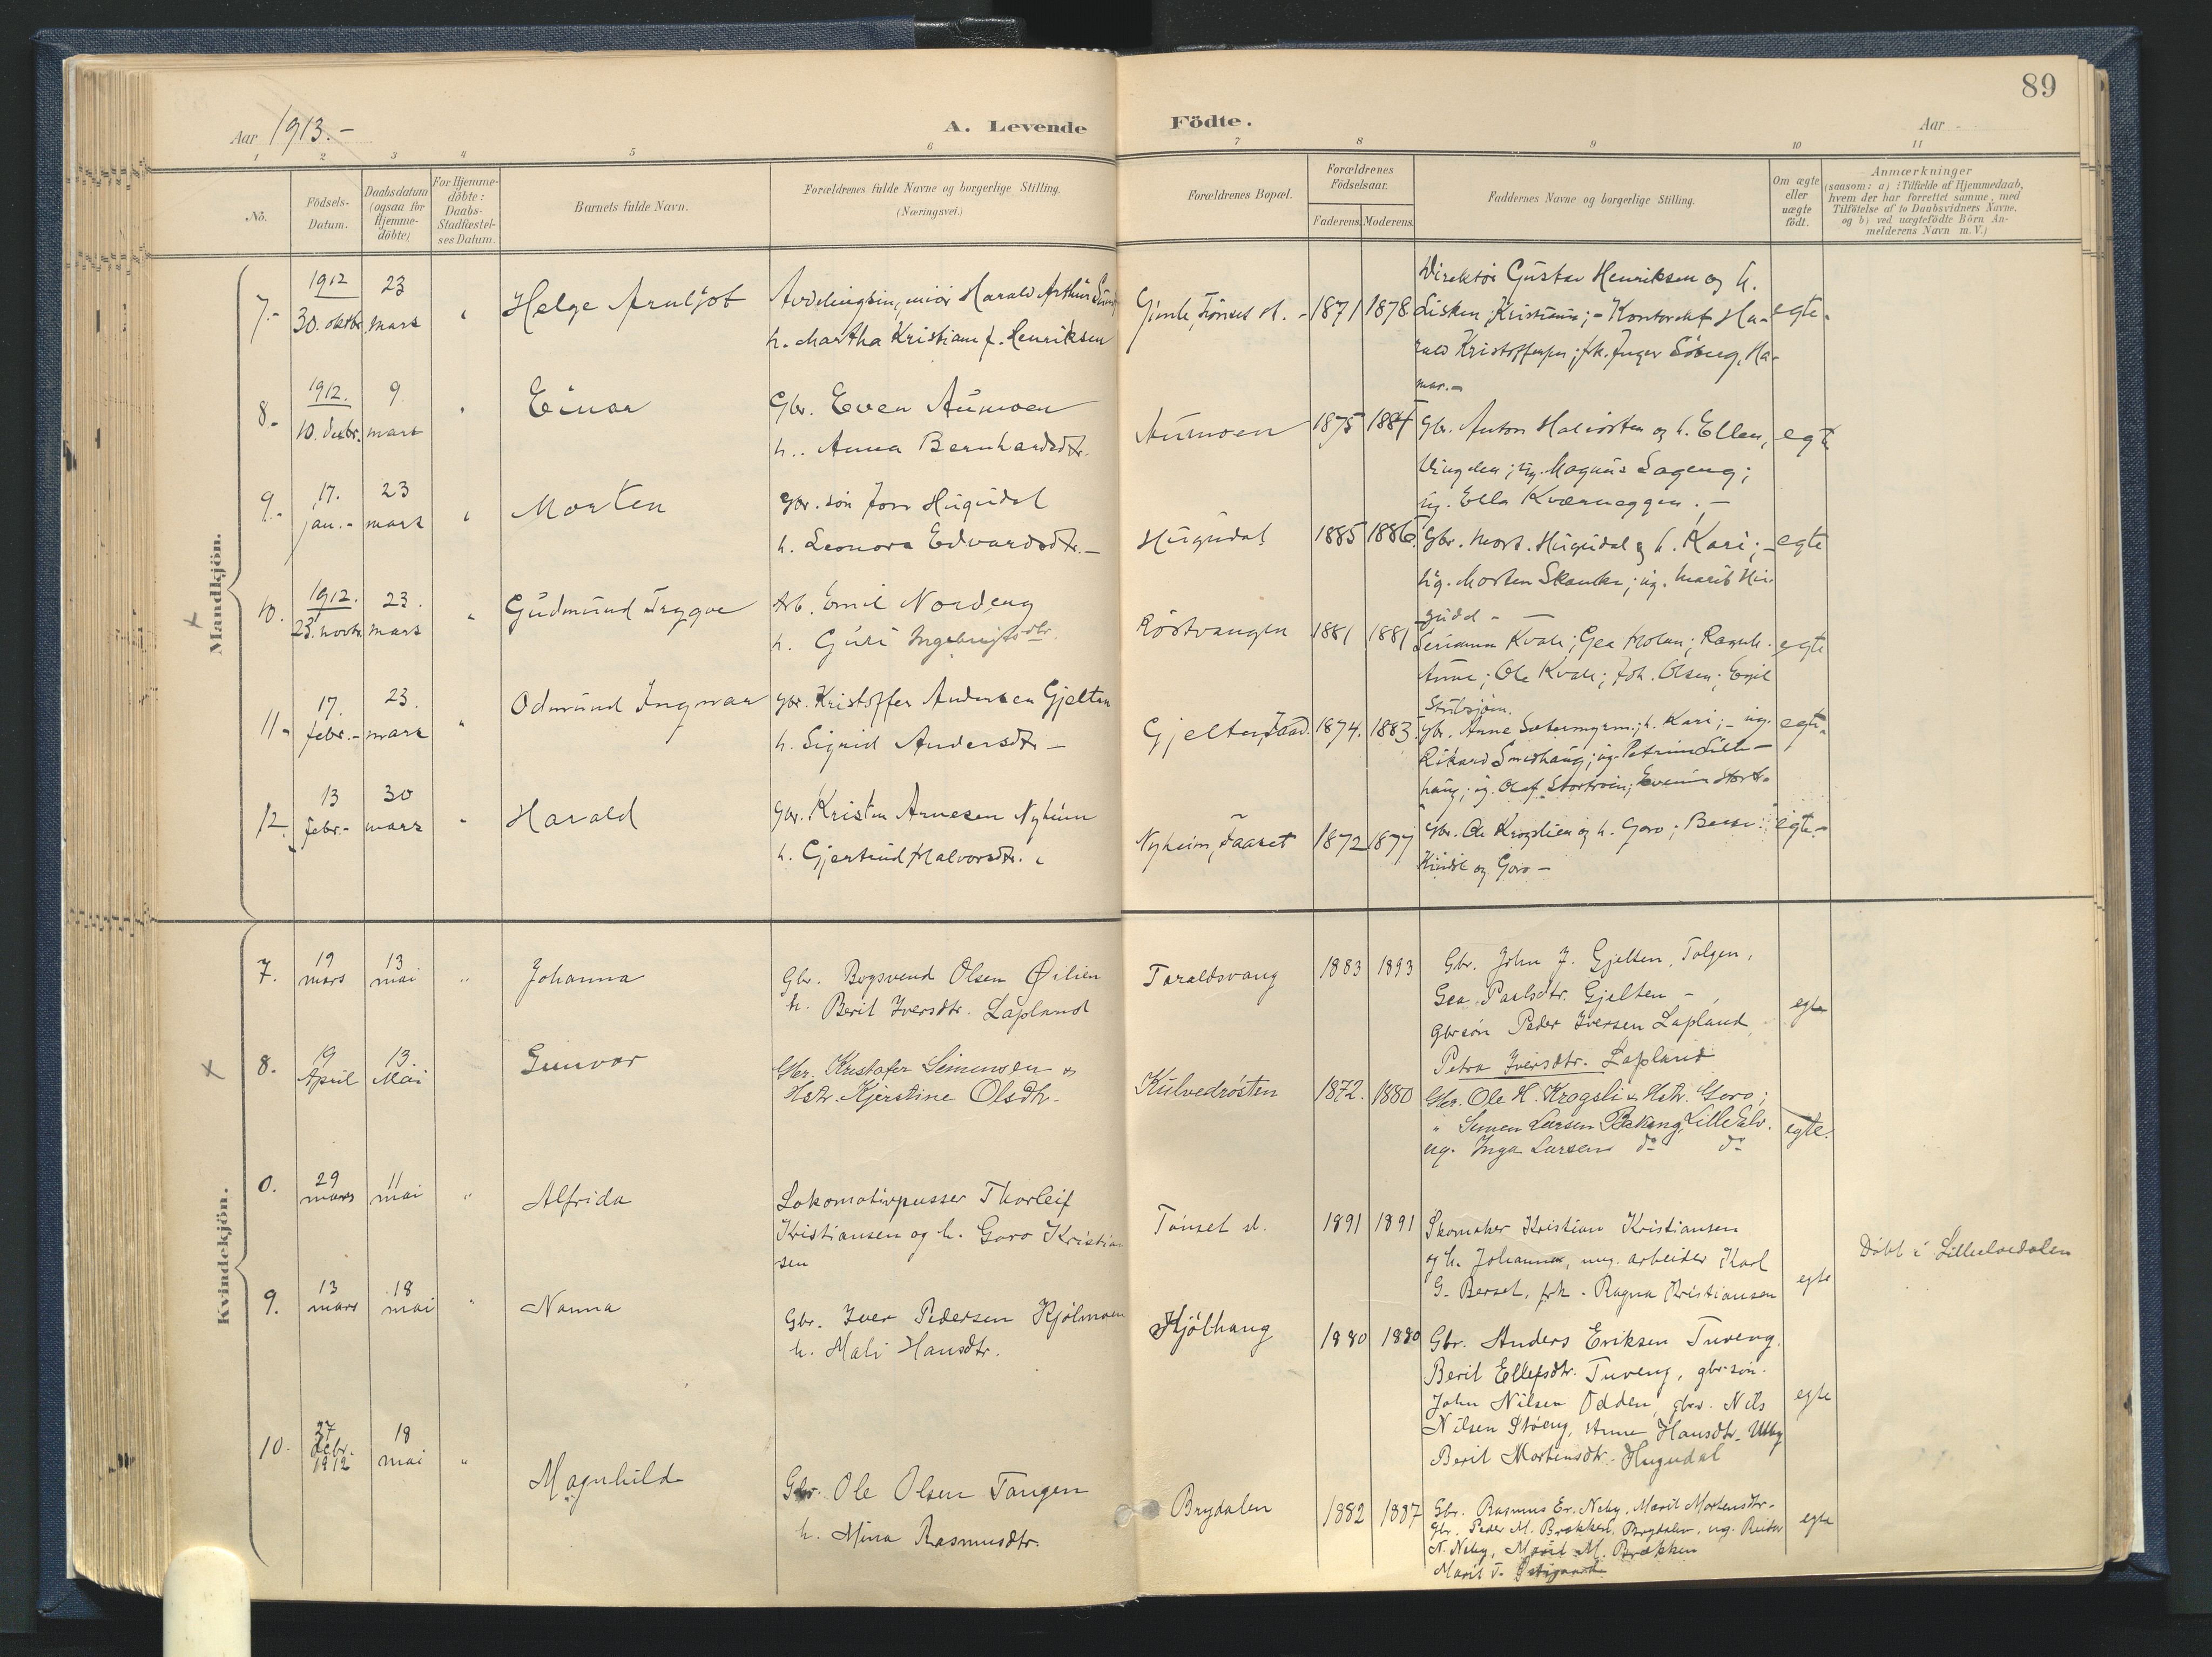 89
Aar 1913.-
A. Levende Födte.
Aar
1 2 3 4 5 6 7 8 9 10 11
No.
Födsels-
Datum.
Daabsdatum
(ogsaa for
Hjemme-
döbte)
For Hjemme-
döbte:
Daabs-
Stadfæstel-
ses Datum.
Barnets fulde Navn.
Forældrenes fulde Navne og borgerlige Stilling.
(Næringsvei.)
Forældrenes Bopæl.
Forældrenes
Födselsaar.
Faderens. Moderens.
Faddernes Navne og borgerlige Stilling.
Om ægte
eller
uægte
födt.
Anmærkninger
(saasom: a) i Tilfælde af Hjemmedaab,
hvem der har forrettet samme, med
Tilföielse af to Daabsvidners Navne,
og b) ved uægtefödte Börn An-
melderens Navn m. V.)
Mandkjön.
7.- 1912 30. oktbr. 23 mars
Helge Arnljot
Harald Arthur
h. Martha Kristiane f. Henriksen
1871 1878
Direktör Gustav Henriksen og h.
Lisken, Kristiania; - Ha-
rald Kristoffersen; frk. Inger Söberg, Ha-
mar.-
egte.
8.- 1912. 10. desbr. 9 mars
Einar
Gbr. Even Aumoen
h. Anna Bernhardsdtr.
Aumoen
1875 1884
Gbr. Anton og h. Ellen,
Vingelen; ug. Magnus Sageng;
ug. Ella Kværneggen. -
egte
9.- 17. jan.- 23 mars
Morten
gbr. sön Jon Hugudal
h. Leonora Edvardsdtr. -
Hugudal
1885 1886
Gbr. Mort. Hugudal og h. Kari; -
ug. Morten Skanke; ug. Marit Hu-
gudal -
egte
10. 1912. 23. novbr. 23. mars
Gudmund Trygve
Arb. Emil Nordeng
h. Guri Ingebrigtsdtr.
Röstvangen
1881 1881
Kvale; Gea Holen;
Ole Kvale; Joh. Olsen; Emil
Strilsjöen.
egte
11- 17. febr.- 23. mars
Odmund Ingmar
gbr. Kristoffer Andersen Gjelten
h. Sigrid Andersdtr -
Gjelten,
1874. 1883.
h. Kari; - ug.
Rikard Smedhaug; ug. Petrine Lille-
haug; ug. Olaf
egte.
12. 13 febr.- 30 mars
Harald
Gbr. Kristen Arnesen Nyheim
h. Gjertrud Halvorsdtr.
Nyheim, Faaset
1872 1877
Gbr. Ole Krogslien og h. Goro;
og Goro -
egte.-
Kvindekjön.
7. 19 mars 13 mai "
Johanna
Gbr. Bogsvend Olsen Øilien
h. Berit Iversdtr. Lapland
Taraldsvang
1883 1893
Gbr. John J. Gjelten, Tolgen,
Gea Paulsdtr. Gjelten -
gbr sön Peder Iversen Lapland,
Petra Iversdtr. Lapland
egte
8. 19 April 13. Mai
Gunvor
Gbr. Kristofer Simensen og
Hstr. Kjerstine Olsdtr.
Kulvedrösten
1872. 1880
Gbr. Ole H. Krogsli & Hstr. Goro;
" Simen Larsen Bekeng, Lille Elv.
ug. Inga Larsen do do
egte.
0. 29 mars 11 mai "
Alfrida
Lokomotivpusser Thorleif
Kristiansen og h. Goro Kristian
sen
Tönset st.
1891 1891
Skomaker Kristian Kristiansen
og h. Johanna, ung. arbeider Karl
G. Berset, frk. Ragna Kristiansen
egte
Döbt i Lilleelvedalen
9. 13 mars 18 mai "
Nanna
Gbr. Iver Pedersen Kjölmoen
h. Mali Hansdtr.
Kjölhaug
1880 1880
Gbr. Anders Eriksen Tuveng.
Berit Ellefsdtr. Tuveng, gbr-sön.
John Nilsen Odden, gbr. Nils
Nilsen Stöeng, Anne Hansdtr. Utby
Berit Mortensdtr. Hugudal
egte
10. 27 debr. 1912 18 mai "
Magnhild
Gbr. Ole Olsen Tangen
h. Mina Rasmusdtr.
Brydalen
1882 1887
Gbr. Rasmus Er. Neby, Marit Mortensdtr.
Gbr. Peder M. Brækken, Brydalen, ug. Reidar
N. Neby, Marit M. Brækken
Marit T. Östigaard
egte